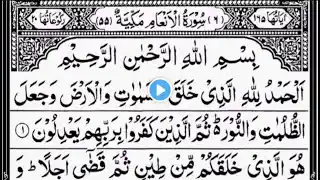 اٰيَاتُهَا ١٦٥ (٦) سُوْرَةُ الْاَنْعَامِ مَكِّيَّةٌ (٥٥) رُكُوْعَاتُهَا ٢٠
بِسْمِ اللّٰهِ الرَّحْمٰنِ الرَّحِيْمِ
اَلْحَمْدُ لِلّٰهِ الَّذِيْ خَلَقَ السَّمٰوٰتِ وَالْاَرْضَ وَجَعَلَ
الظُّلُمٰتِ وَالنُّوْرَ ؕ ثُمَّ الَّذِيْنَ كَفَرُوْا بِرَبِّهِمْ يَعْدِلُوْنَ ۝١
هُوَ الَّذِيْ خَلَقَكُمْ مِّنْ طِيْنٍ ثُمَّ قَضٰۤى اَجَلًا ؕ وَ